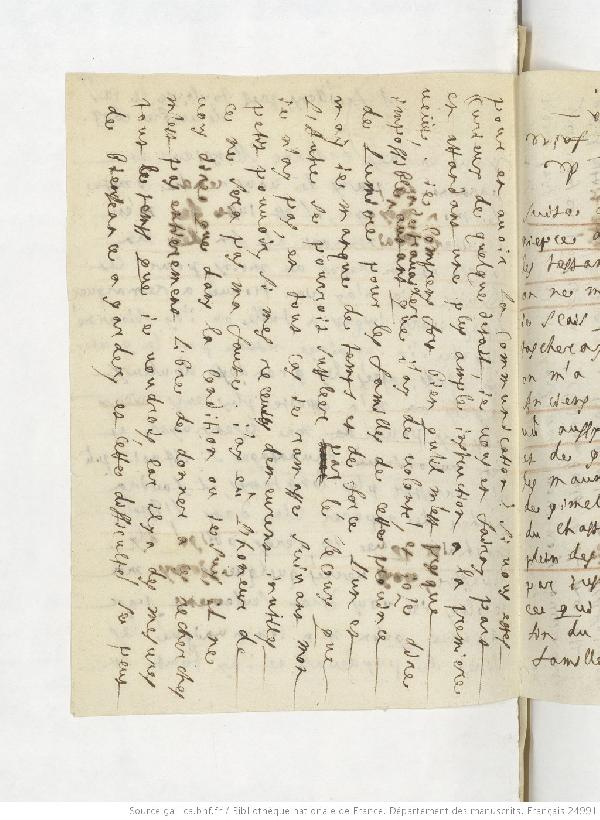 pour en avoir la communication. Si vous estes
curieux de quelque detail, ie vous en fairay part
en attandant une plus ample instruction a la premiere
veüe. ie comprens fort bien qu'il m'est presque
impossible autant que i'ay de volonté et ie dire
de lumiere pour les familles de cette province
mais ie manque de temps et de force l'un et
l'autre se pourroit supleer par le secours que
ie n'ay pas, en tous cas ie ramasse suivant mon
petit pouvoir, si mes receuils demeurent inutiles
ce ne sera pas ma faute. i'ay eu l'honeur de
vous dire que dans la condition ou ie suis il ne
m'est pas entierement libre de donner a ces recherches
tout le temps que ie voudrois, car il y a des mesures
de bienseance a garder, et cette difficulté se peut
suite
pieces
les testam
on ne m
ie scais
on m'a
anciens
et des
les mau
des
du chast
plein de
par
ces qui
fin du
famille
Source gallica.bnf.fr / Bibliothèque nationale de France. Département des manuscrits. Français 24991